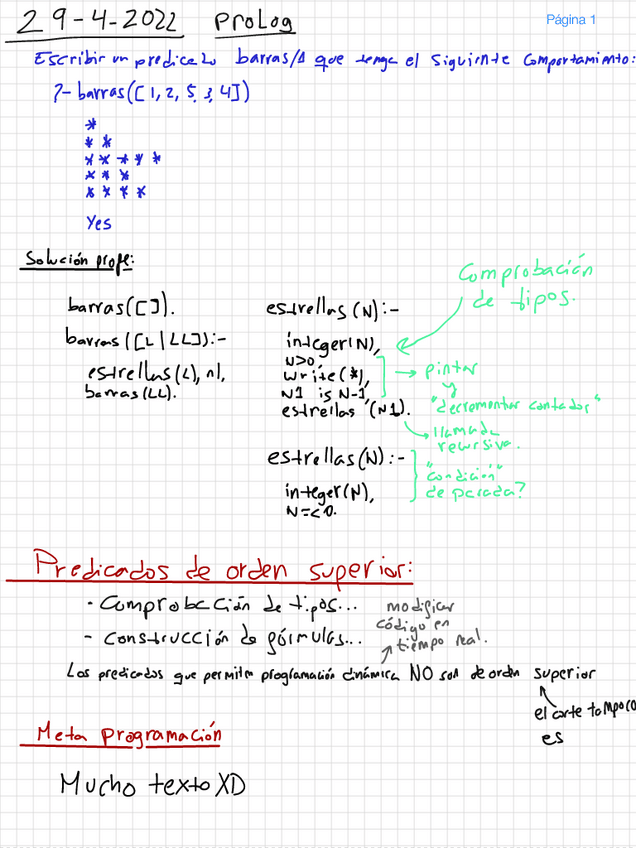 29-4-2022 Prolog
Página 1
Escribir un predicado barras/1 que tenga el siguiente comportamiento:
?- barras([1, 2, 5, 3, 4])
*
* *
* * * * *
* * *
* * * *
Yes
Solución profe:
barras([]).
barras([L|LL]):-
estrellas(L), nl,
barras(LL).
estrellas(N):-
integer(N),
N>0,
write(*),
N1 is N-1,
estrellas (N1).
estrellas(N):-
integer(N),
N=<0.
Comprobación
de tipos.
→ pintar
y
"decrementar contador"
→ llamada
recursiva.
"condición"
de parada?
Predicados de orden superior:
- Comprobación de tipos...
- Construcción de fórmulas...
modificar
código en
tiempo real.
Los predicados que permiten programación dinámica NO son de orden superior
el corte tampoco
es
Meta programación
Mucho texto XD